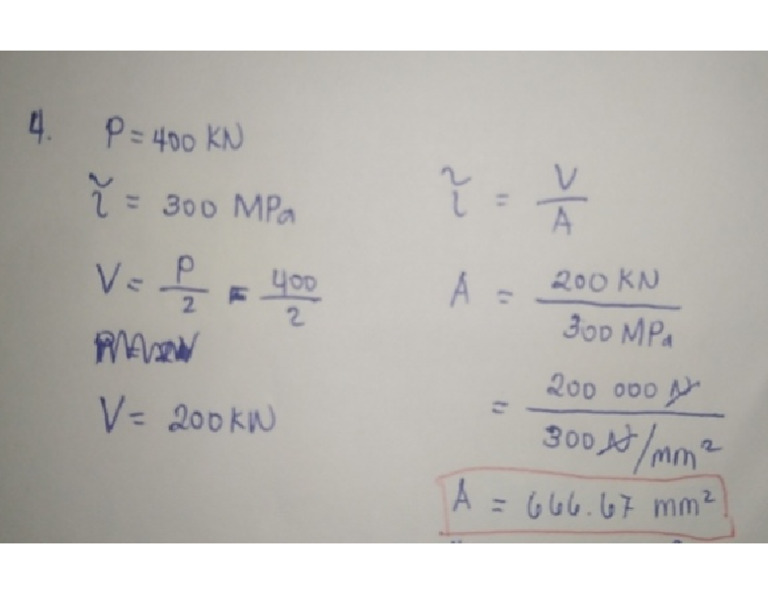 4. P = 400 KN
τ̃ = 300 MPa
V = P/2 = 400/2
V = 200 KN
τ̃ = V/A
A = 200 KN / 300 MPa
= 200 000 N / 300 N/mm²
A = 666.67 mm²